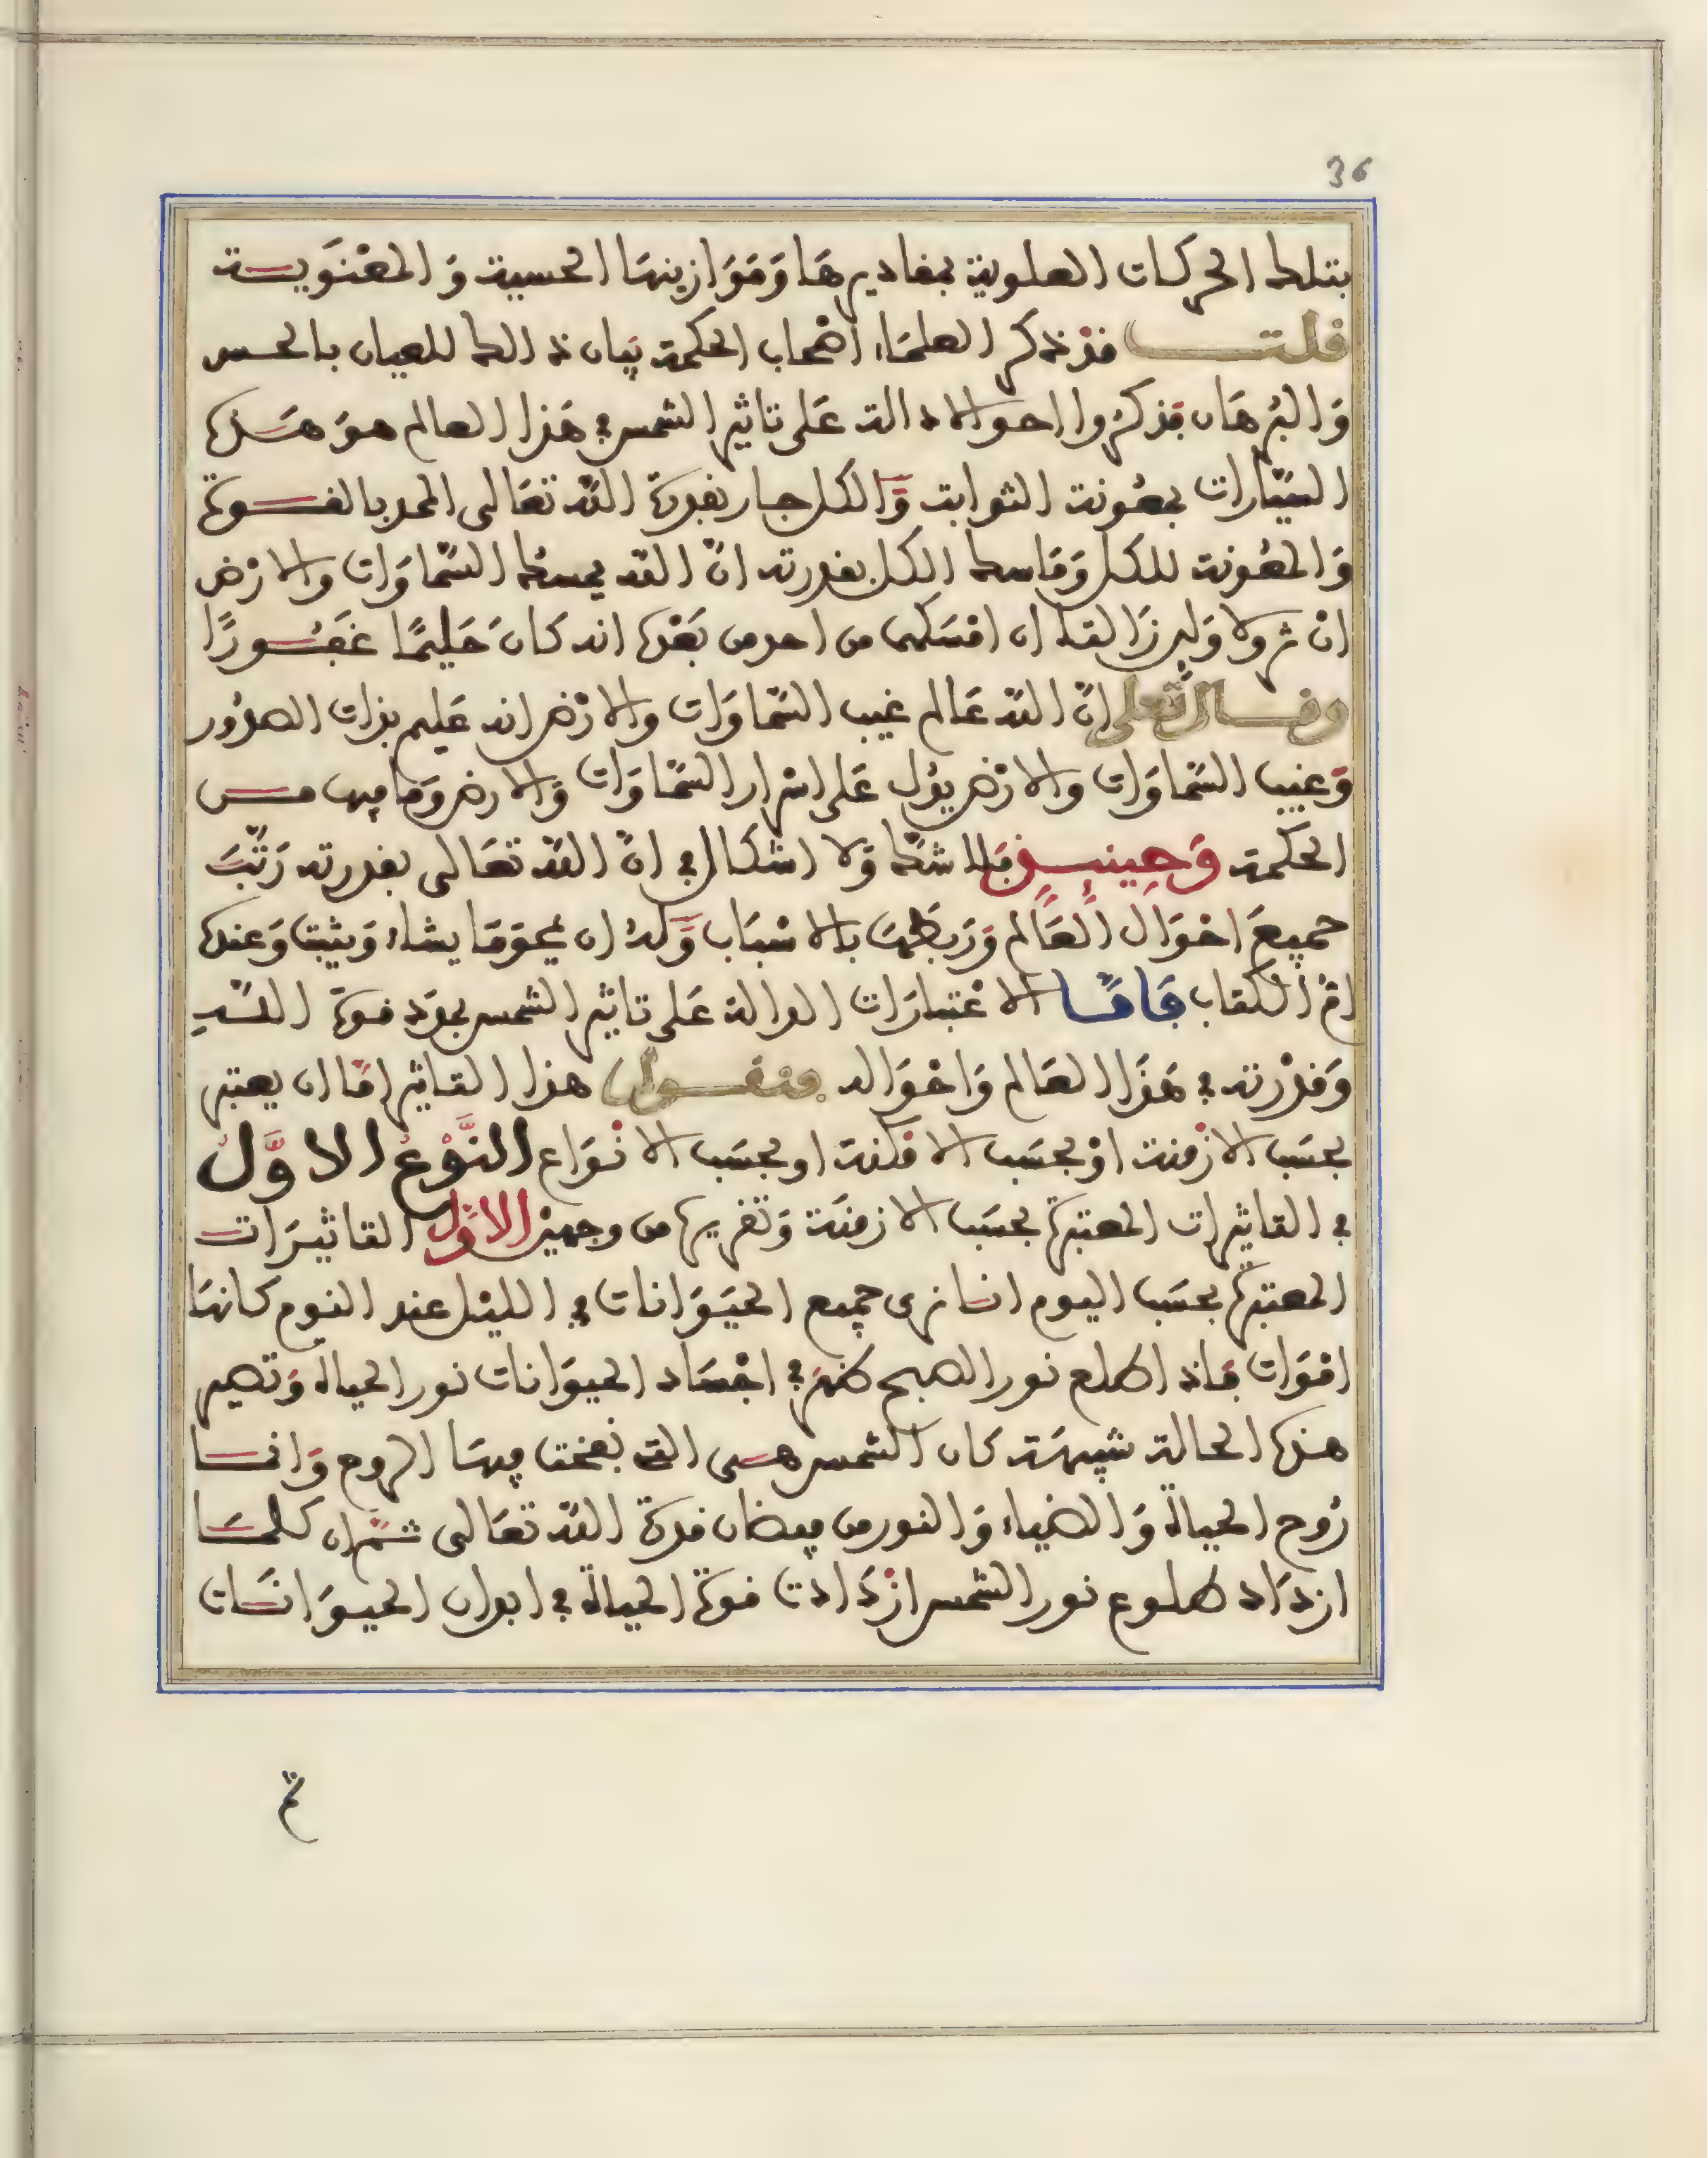 36
بتلك الحركات العلوية بمقاديرها وَمَوَازينهَا الحسية وَالمعْنَويـــة
قلت قدْ ذكر العلمَاء أصْحاب الحكمة بيَان ذالك للعيان بالحس
وَالبُرهَان فذكرُوا احوالا دالة عَلى تاثير الشمس في هَذا العالم هوَ هَذه
السيّارات بمعُونة الثوابت وَّالكل جار بقدرة اللّه تعَالى الممد بالقـــوة
وَالمعُونة للكل وَمَاسك الكل بقدرته انّ اللّه يمسكُ السّمَاوَات والارْض
انْ تزولا وَلين زَالتا ان امْسَكهمَا من احد من بَعْده انه كانَ حَليمًا غفُـــورًا
وقـال تعلى انّ اللّه عَالم غيب السّمَاوَات والارْض انه عَليم بذات الصدُور
وَغيب السّمَاوَات والارْض يؤل عَلى اسْرار السّمَاوَات وَالارض وَمَا فيها مـــن
الحكمة وَحِينئِـــذٍ فَلا شكّ وَلا اشكال في انّ اللّه تعَالى بقدرته رَتّبَ
جميعَ احْوَال العَالم وَرَبَطهَا بالاسْبَاب وَّلهُ ان يمحوَ مَا يشاء وَيثبت وَعنده
امُّ الكتاب فَامَّـا الاعْتبَارَات الدالة عَلى تاثير الشمس بعدَ قوة اللّـــه
وَقدْرته في هَذَا العَالم وَاحْوَاله فنقـــول هذا التاثير امّا ان يعتبر
بحسَب الازْمنة اوْ بحسَب الامْكنة او بحسَب الانْوَاع النَّوْعُ الاوَّلُ
في التاثيرات المعتبرة بحسَب الازمنَة وَتقريرها من وجهين الاوّل التاثيرَات
المعتبرة بحسَب اليوم انا نرى جميع الحيَوَانات في الليْل عند النوم كانهَا
امْوَات فَاذ اطلع نور الصبح ظهَرَ في اجْسَاد الحيوَانات نور الحياة وَتصير
هذه الحالة شبيهَة كان الشمس هـــى التى نفخت فيهَا الروح وَانمـــا
رُوح الحياة وَالضياء وَالنور من فيضان قدرة اللّه تعَالى ثـمّ ان كلمَــا
ازدَاد طلوع نور الشمس ازْدَادت قوة الحياة في ابدان الحيوَانَــات
ثم